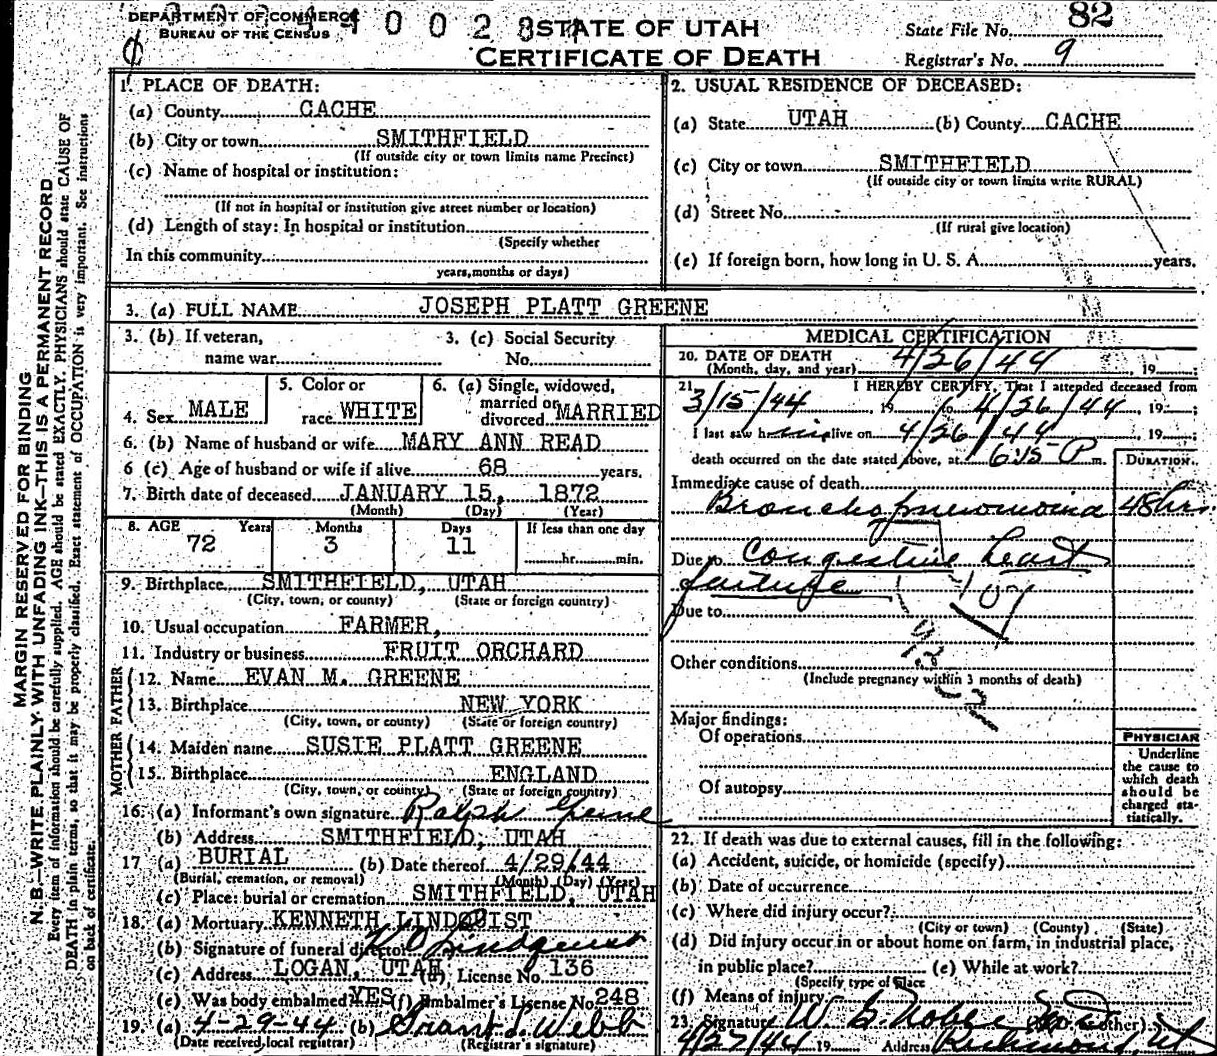 DEPARTMENT OF COMMERCE
BUREAU OF THE CENSUS
STATE OF UTAH
CERTIFICATE OF DEATH
State File No. 82
Registrar's No. 9
MARGIN RESERVED FOR BINDING
N. B.—WRITE PLAINLY WITH UNFADING INK—THIS IS A PERMANENT RECORD
Every item of information should be carefully supplied. AGE should be stated EXACTLY. PHYSICIANS should state CAUSE OF
DEATH in plain terms, so that it may be properly classified. Exact statement of OCCUPATION is very important. See instructions
on back of certificate.
1. PLACE OF DEATH:
(a) County CACHE
(b) City or town SMITHFIELD
(If outside city or town limits name Precinct)
(c) Name of hospital or institution:
(If not in hospital or institution give street number or location)
(d) Length of stay: In hospital or institution
(Specify whether
In this community
years, months or days)
2. USUAL RESIDENCE OF DECEASED:
(a) State UTAH (b) County CACHE
(c) City or town SMITHFIELD
(If outside city or town limits write RURAL)
(d) Street No.
(If rural give location)
(e) If foreign born, how long in U. S. A. years.
3. (a) FULL NAME JOSEPH PLATT GREENE
3. (b) If veteran,
name war
3. (c) Social Security
No.
4. Sex MALE
5. Color or
race WHITE
6. (a) Single, widowed,
married or
divorced MARRIED
6. (b) Name of husband or wife MARY ANN READ
6 (c) Age of husband or wife if alive 68 years.
7. Birth date of deceased JANUARY 15, 1872
(Month) (Day) (Year)
8. AGE Years Months Days If less than one day
72 3 11 hr. min.
9. Birthplace SMITHFIELD, UTAH
(City, town, or county) (State or foreign country)
10. Usual occupation FARMER,
11. Industry or business FRUIT ORCHARD
FATHER
12. Name EVAN M. GREENE
13. Birthplace NEW YORK
(City, town, or county) (State or foreign country)
MOTHER
14. Maiden name SUSIE PLATT GREENE
15. Birthplace ENGLAND
(City, town, or county) (State or foreign country)
16. (a) Informant's own signature Ralph Greene
(b) Address SMITHFIELD, UTAH
17 (a) BURIAL (b) Date thereof 4/29/44
(Burial, cremation, or removal) (Month) (Day) (Year)
(c) Place: burial or cremation SMITHFIELD, UTAH
18. (a) Mortuary KENNETH LINDQUIST
(b) Signature of funeral director K O Lindquist
(c) Address LOGAN, UTAH (d) License No. 136
(e) Was body embalmed? YES (f) Embalmer's License No. 248
19. (a) 4-29-44 (b) Grant S. Webb
(Date received local registrar) (Registrar's signature)
MEDICAL CERTIFICATION
20. DATE OF DEATH 4/26/44
(Month, day, and year) , 19 ;
21. I HEREBY CERTIFY, That I attended deceased from
3/15/44 19 to 4/26/44, 19 ;
I last saw him alive on 4/26/44, 19 ;
death occurred on the date stated above, at 6:15 P m.
DURATION
Immediate cause of death
Bronchopneumonia 48 hrs.
Due to Congestive heart
failure
107
Due to
Other conditions
(Include pregnancy within 3 months of death)
Major findings:
Of operations
Of autopsy
PHYSICIAN
Underline
the cause to
which death
should be
charged sta-
tistically.
22. If death was due to external causes, fill in the following:
(a) Accident, suicide, or homicide (specify)
(b) Date of occurrence
(c) Where did injury occur?
(City or town) (County) (State)
(d) Did injury occur in or about home on farm, in industrial place,
in public place? (e) While at work?
(Specify type of place
(f) Means of injury
23. Signature W G. Noble
4/27/44 19 Address Richmond, Ut